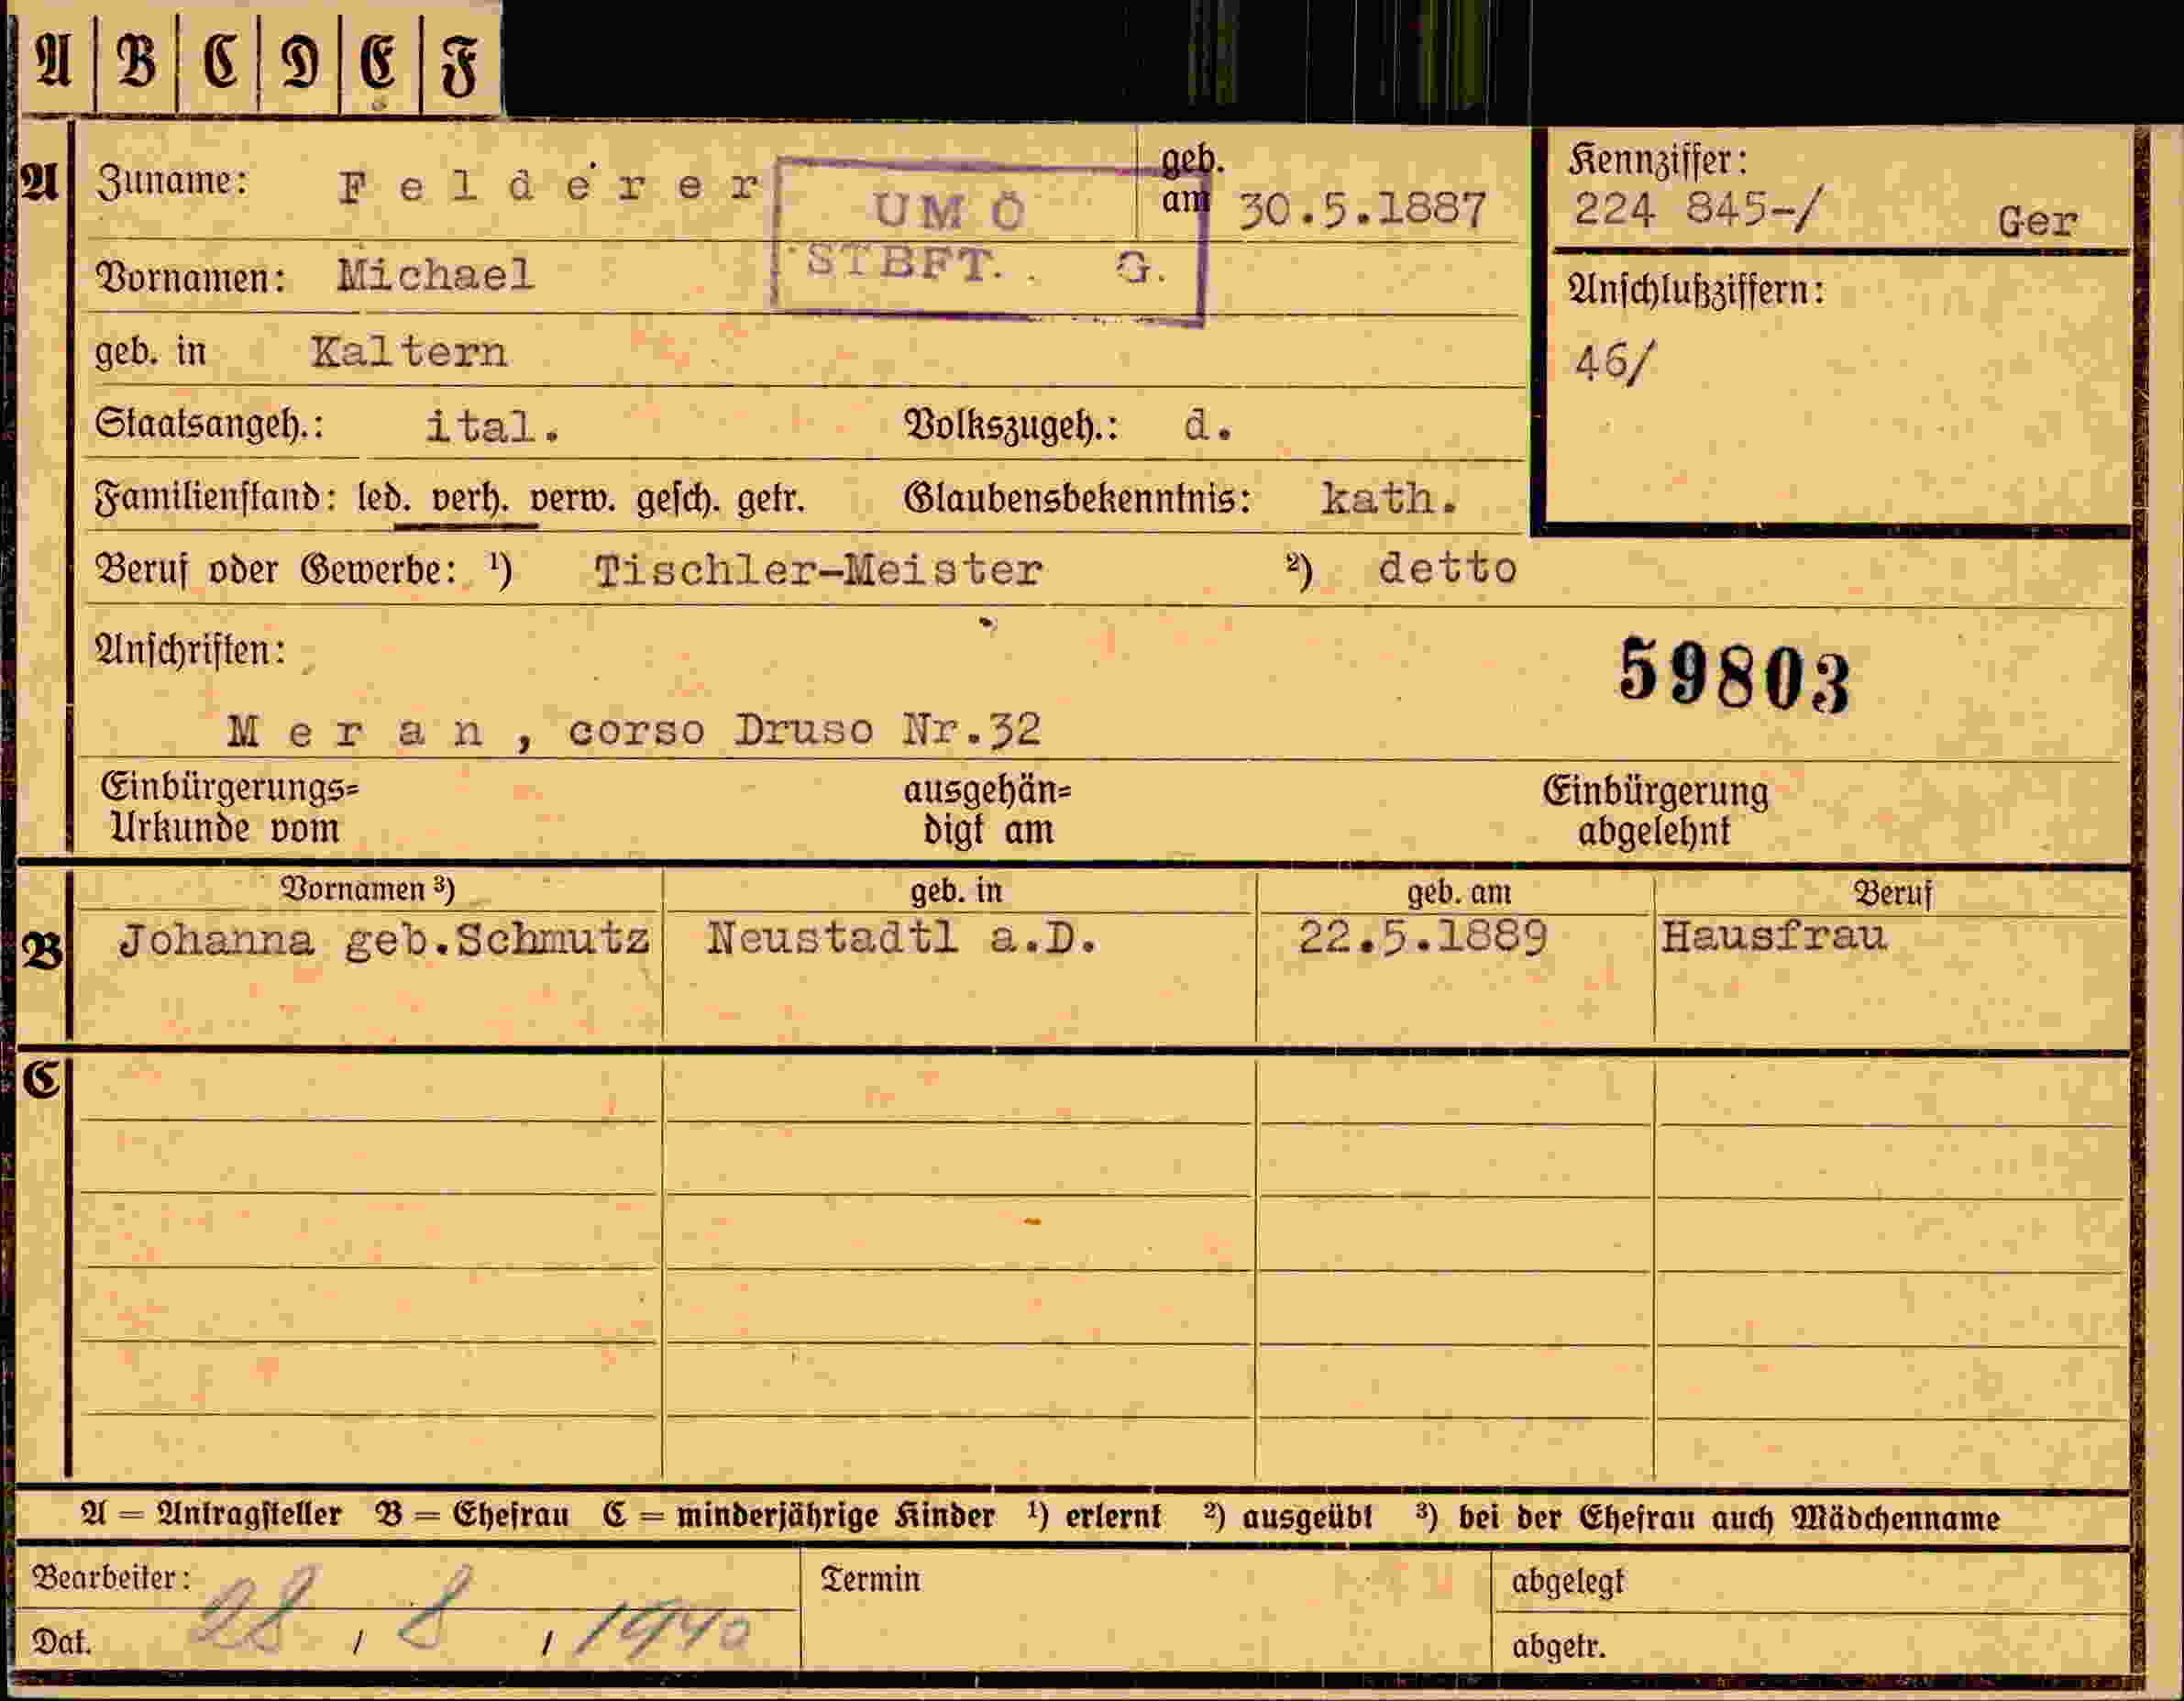 A B C D E F
A Zuname: Felderer geb. am 30.5.1887
UMÖ
STBFT. . G.
Kennziffer:
224 845-/ Ger
Vornamen: Michael
Anschlußziffern:
46/
geb. in Kaltern
Staatsangeh.: ital. Volkszugeh.: d.
Familienstand: led. verh. verw. gesch. getr. Glaubensbekenntnis: kath.
Beruf oder Gewerbe: ¹) Tischler-Meister ²) detto
Anschriften:
59803
Meran, corso Druso Nr.32
Einbürgerungs= ausgehän= Einbürgerung
Urkunde vom digt am abgelehnt
Vornamen ³) geb. in geb. am Beruf
B Johanna geb.Schmutz Neustadtl a.D. 22.5.1889 Hausfrau
C
A = Antragsteller B = Ehefrau C = minderjährige Kinder ¹) erlernt ²) ausgeübt ³) bei der Ehefrau auch Mädchenname
Bearbeiter: Termin abgelegt
Dat. 28 / 8 / 1940 abgetr.